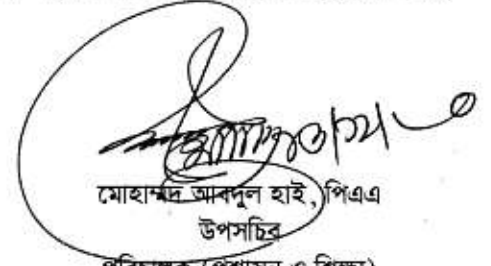 মোহাম্মদ আবদুল হাই, পিএএ
উপসচিব
পরিচালক (প্রশাসন ও শিক্ষা)